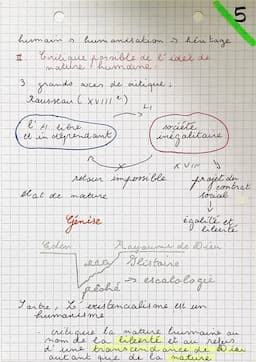 5
humain → humanisation → héritage
II Critique possible de l'idée de
nature humaine.
3 grands axes de critique:
Rousseau (XVIIIe)
l'H libre
et indépendant
société
inégalitaire
XVIII
retour impossible
projet du
contrat
social
état de nature
égalité et
liberté
Génèse
Eden Royaume de Dieu
Histoire
→ escatologie
Sartre, L'existencialisme est un
humanisme
- critique la nature humaine au
nom de la liberté et au refus
d'une transcendance de Dieu
autant que de la nature